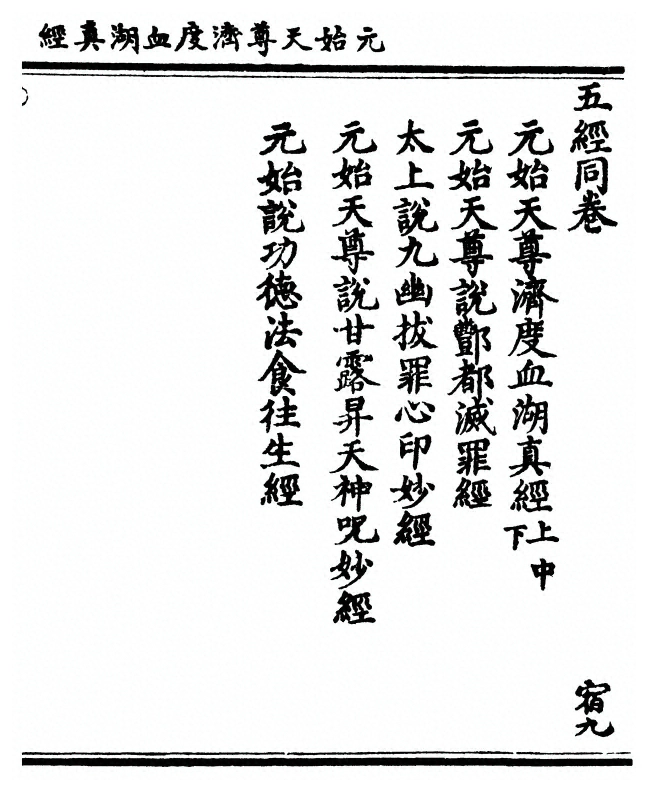 元始天尊濟度血湖真經
五經同卷
宿九
元始天尊濟度血湖真經上中下
元始天尊說酆都滅罪經
太上說九幽拔罪心印妙經
元始天尊說甘露昇天神呪妙經
元始說功德法食往生經